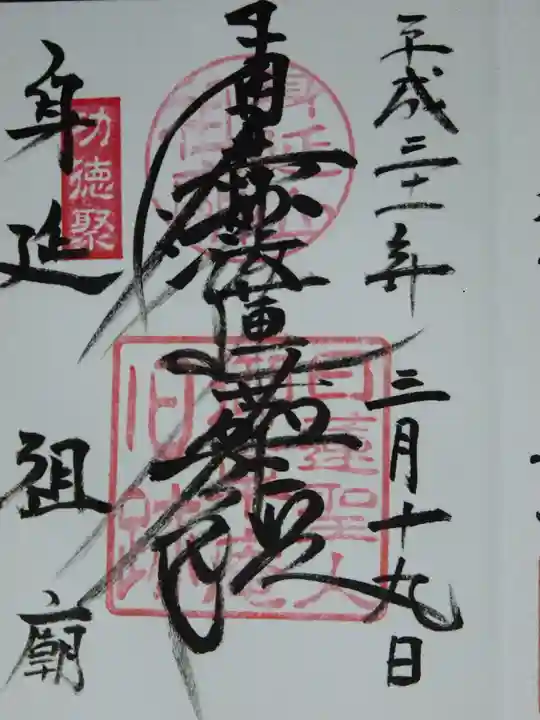 平成三十一年 三月十九日
南無妙法蓮華経
日蓮聖人
旧跡
功徳聚
身延 祖廟